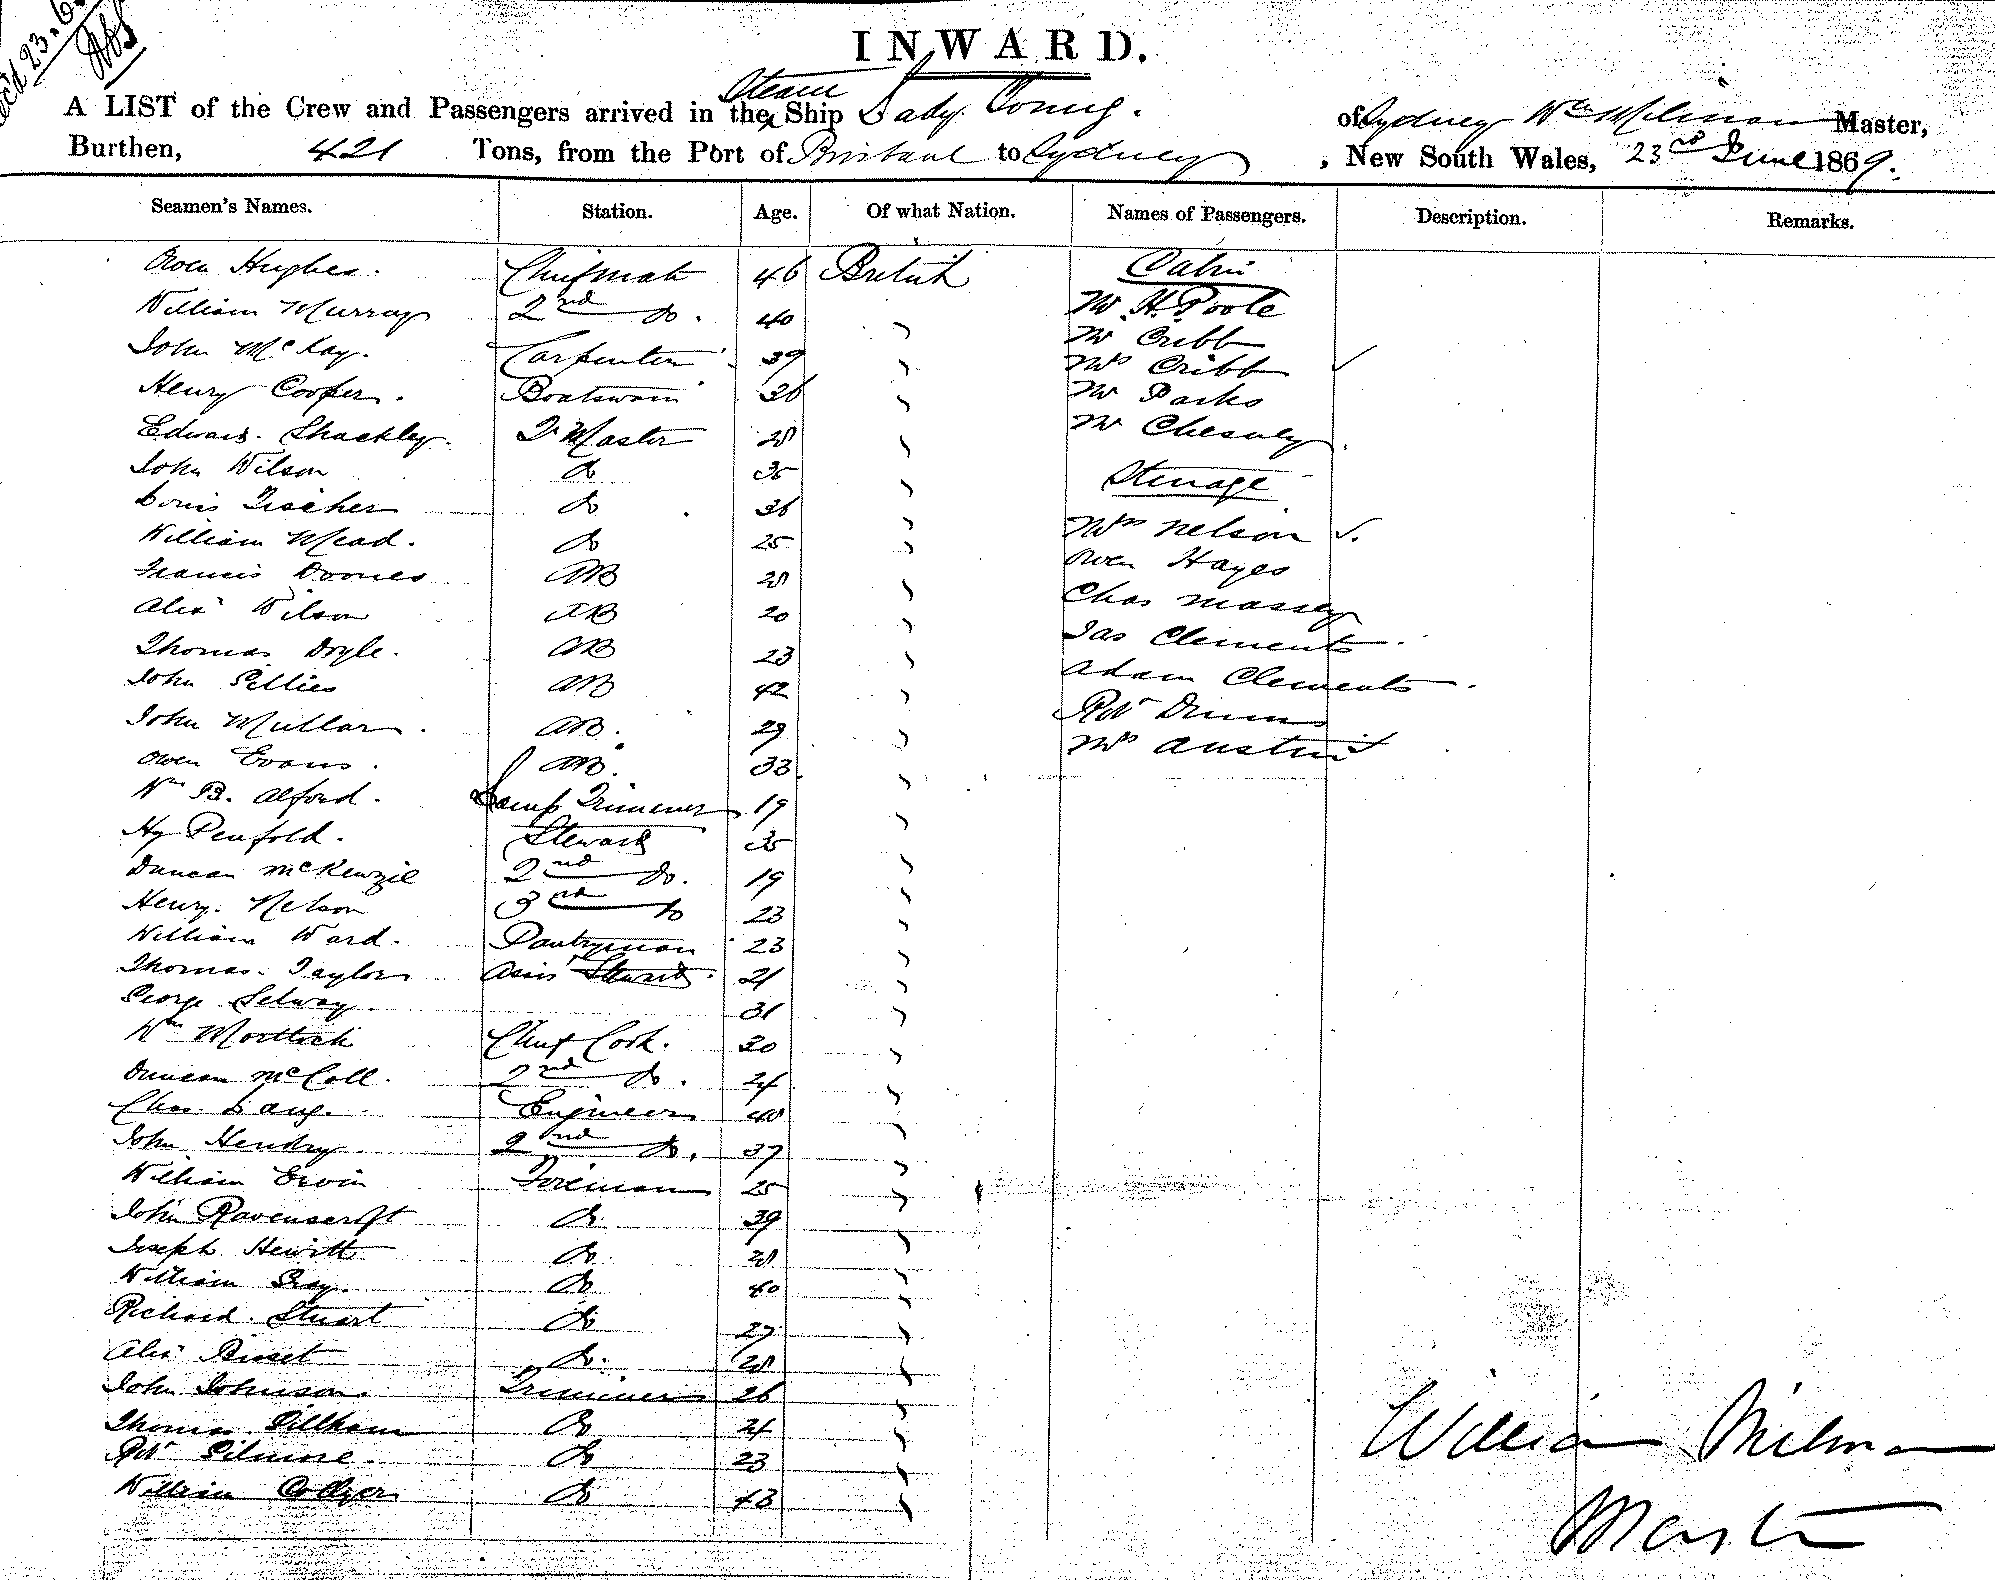 23.6
INWARD.
A LIST of the Crew and Passengers arrived in the Steam Ship Lady Young. of Sydney Wm Milman Master,
Burthen, 421 Tons, from the Port of Brisbane to Sydney, New South Wales, 23rd June 1869.
Seamen's Names. Station. Age. Of what Nation. Names of Passengers. Description. Remarks.
Owen Hughes. Chief Mate 46 British Cabin
William Murray 2nd do. 40 " Mr H. Poole
John McKay. Carpenter 39 " Mr Cribb
Henry Cooper. Boatswain 36 " Mrs Cribb
Edward Shackley. Qr Master 28 " Mr Parks
John Wilson do 35 " Mr
Louis Fischer do 36 " Steerage
William Mead. do 25 " Mrs Nelson
Francis AB 28 " Owen Hayes
Alexr Wilson AB 20 " Chas Massey
Thomas Doyle. AB 23 " Jas Clements
John Gillies AB 42 " Adam Clements
John Mullar. AB. 29 " Robt
Owen Evans. AB. 33 " Mrs Austin
Wm B. Alford. Lamp Trimmer 19 "
Hy Penfold. Steward 35 "
Duncan McKenzie 2nd do. 19 "
Henry Nelson 3rd do 23 "
William Ward. Pantryman 23 "
Thomas Taylor Assist Steward 21 "
George Selway. 31 "
Wm Chief Cook. 30 "
Duncan McColl. 2nd do. 24 "
Chas Lang. Engineer 40 "
John Hendry. 2nd do. 37 "
William Ervin Fireman 25 "
John Ravenscroft do 39 "
Joseph Hewitt do 28 "
William Gray. do 40 "
Richard Stuart do 27 "
Alexr Bisset do. 28 "
John Johnson. Trimmer 26 "
Thomas Pillham do 24 "
Robt Gilmore. do 23 "
William Collyer do 43 "
William Milman
Master